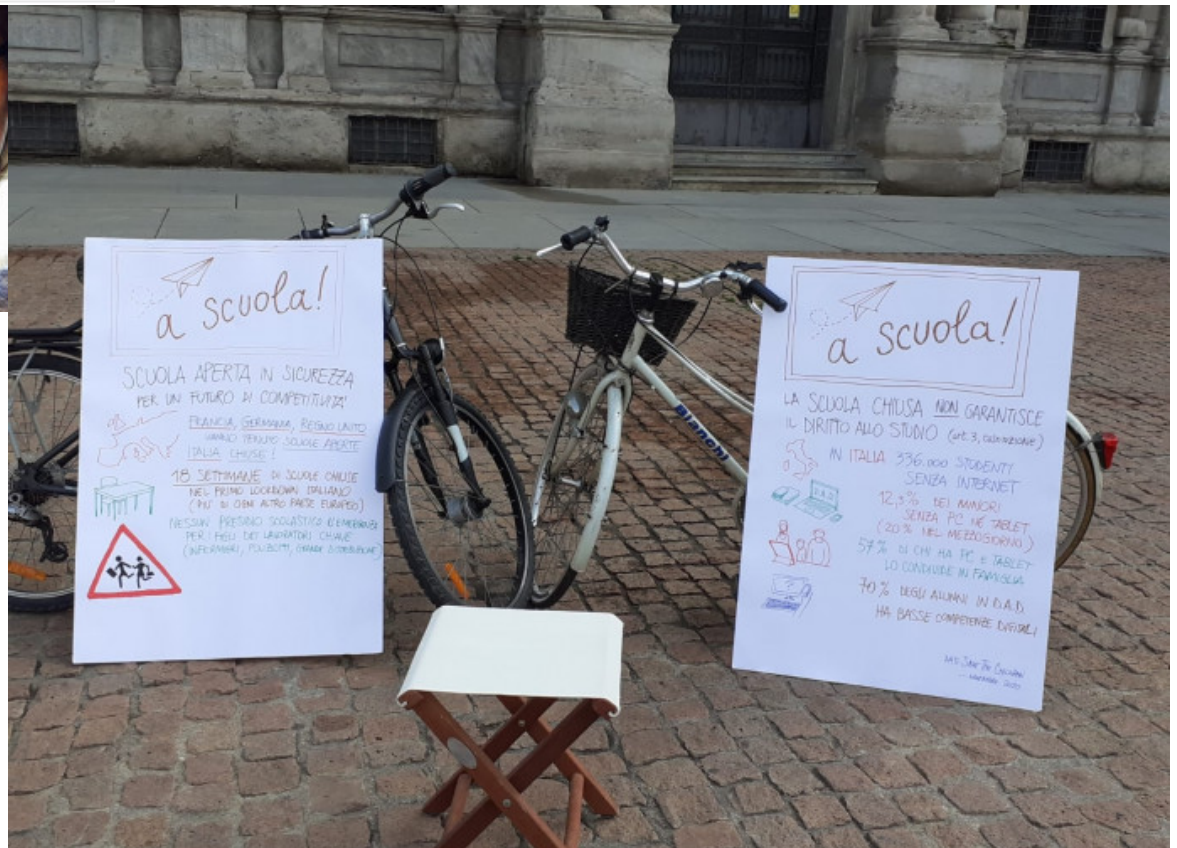 a scuola!
SCUOLA APERTA IN SICUREZZA
PER UN FUTURO DI COMPETITIVITA'
FRANCIA, GERMANIA, REGNO UNITO
HANNO TENUTO SCUOLE APERTE
ITALIA CHIUSE!
18 SETTIMANE DI SCUOLE CHIUSE
NEL PRIMO LOCKDOWN ITALIANO
(PIU' DI OGNI ALTRO PAESE EUROPEO)
NESSUN PRESIDIO SCOLASTICO D'EMERGENZA
PER I FIGLI DEI LAVORATORI CHIAVE
(INFERMIERI, POLIZIOTTI, GRANDE DISTRIBUZIONE)
Bianchi
a scuola!
LA SCUOLA CHIUSA NON GARANTISCE
IL DIRITTO ALLO STUDIO (art. 3, costituzione)
IN ITALIA 336.000 STUDENTI
SENZA INTERNET
D.A.D.
12,3% DEI MINORI
SENZA PC NÉ TABLET
(20% NEL MEZZOGIORNO)
57% DI CHI HA PC E TABLET
LO CONDIVIDE IN FAMIGLIA
70% DEGLI ALUNNI IN D.A.D.
HA BASSE COMPETENZE DIGITALI